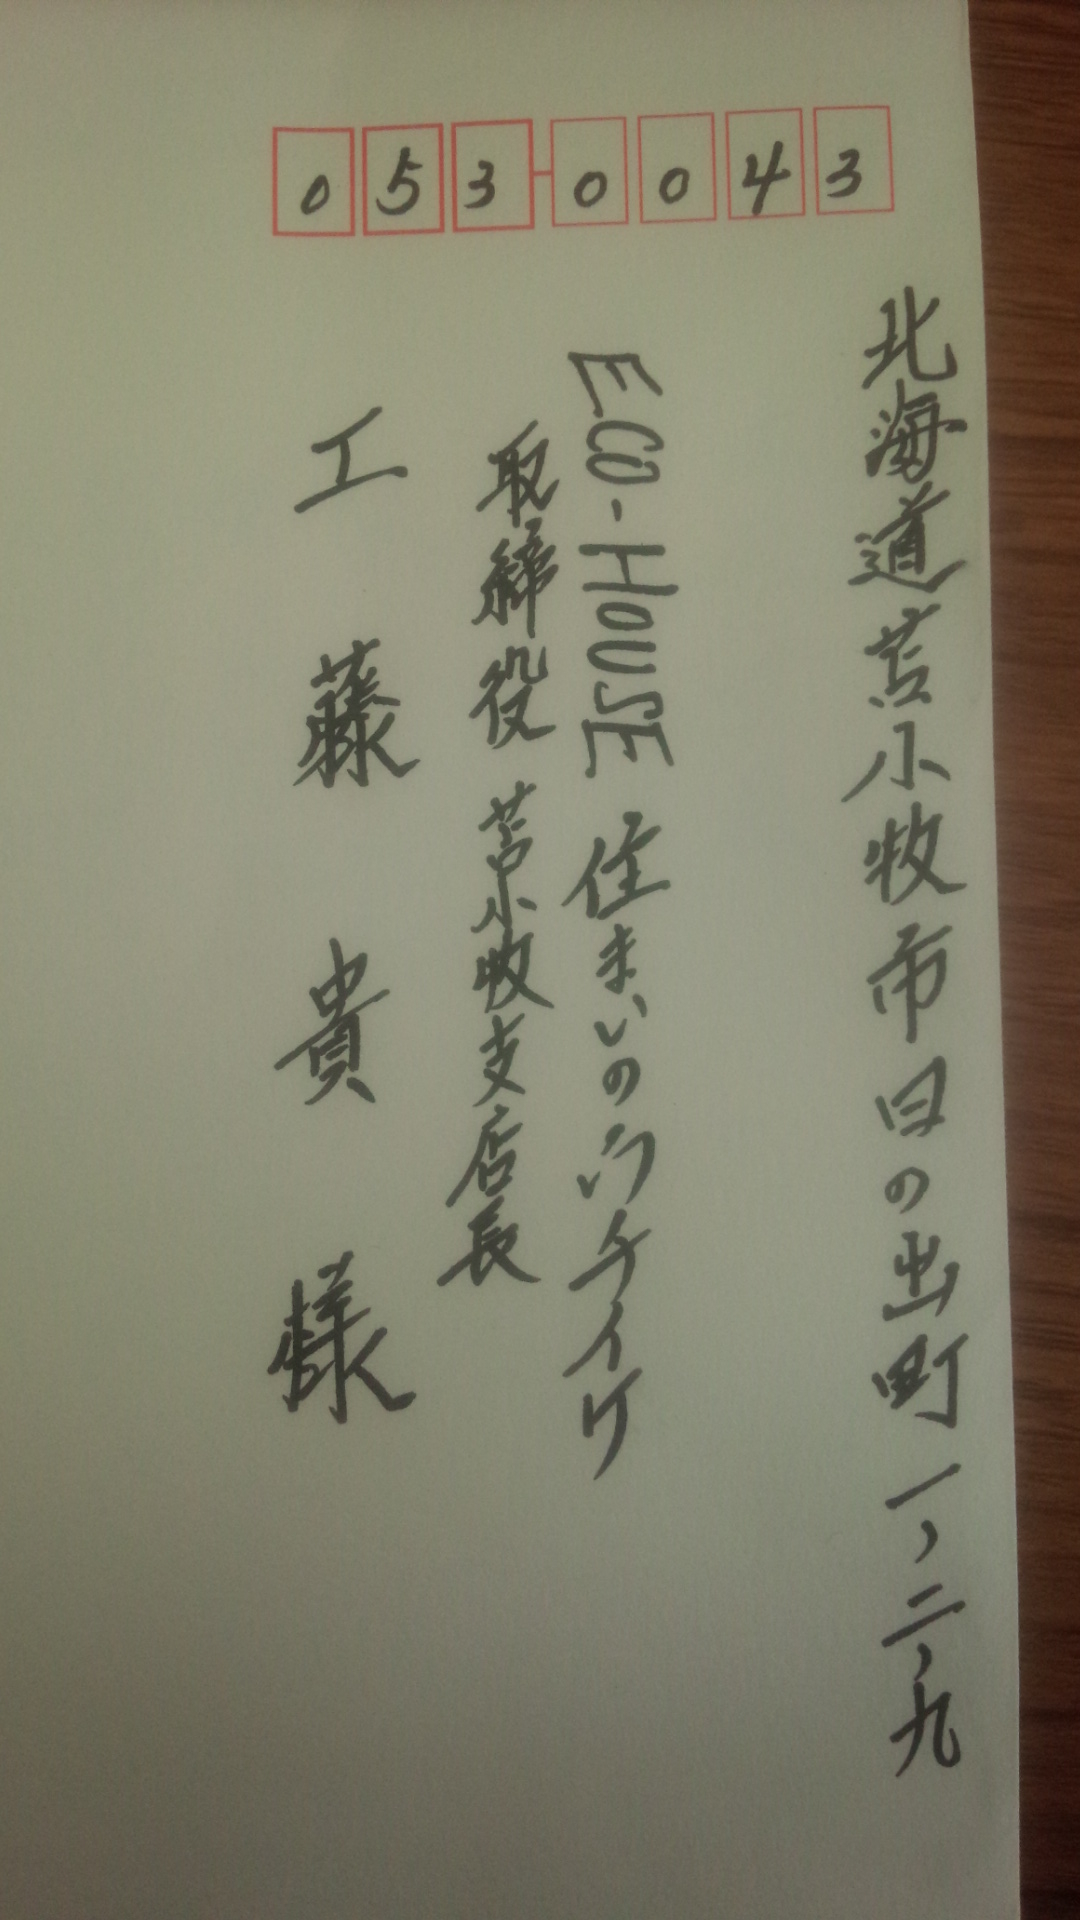 053-0043
北海道苫小牧市日の出町一、二、九
ECO-HOUSE 住まいのウチイケ
取締役 苫小牧支店長
工藤 貴 様